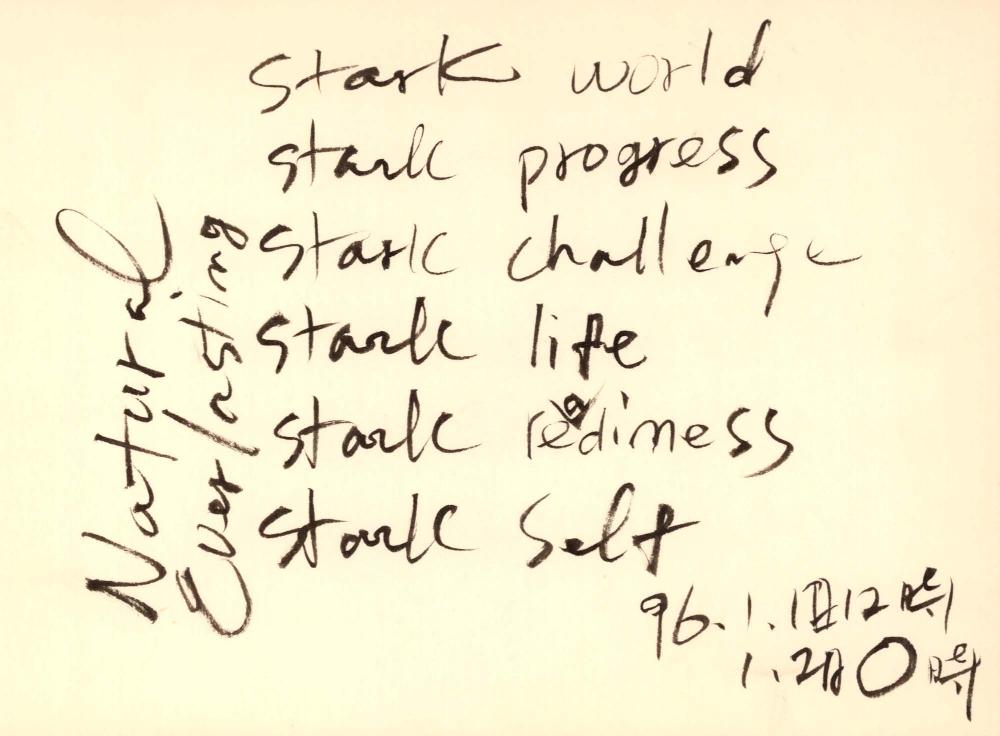 stark world
stark progress
stark challenge
stark life
stark readiness
stark self
Natural
Everlasting
96.1.1日12時
1.2日0時